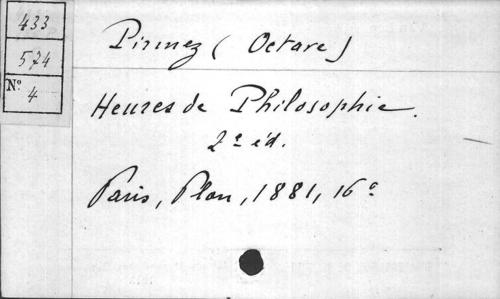 433
574
N°.
4
Pirmez (Octave)
Heures de Philosophie.
2e éd.
Paris, Plon, 1881, 16°